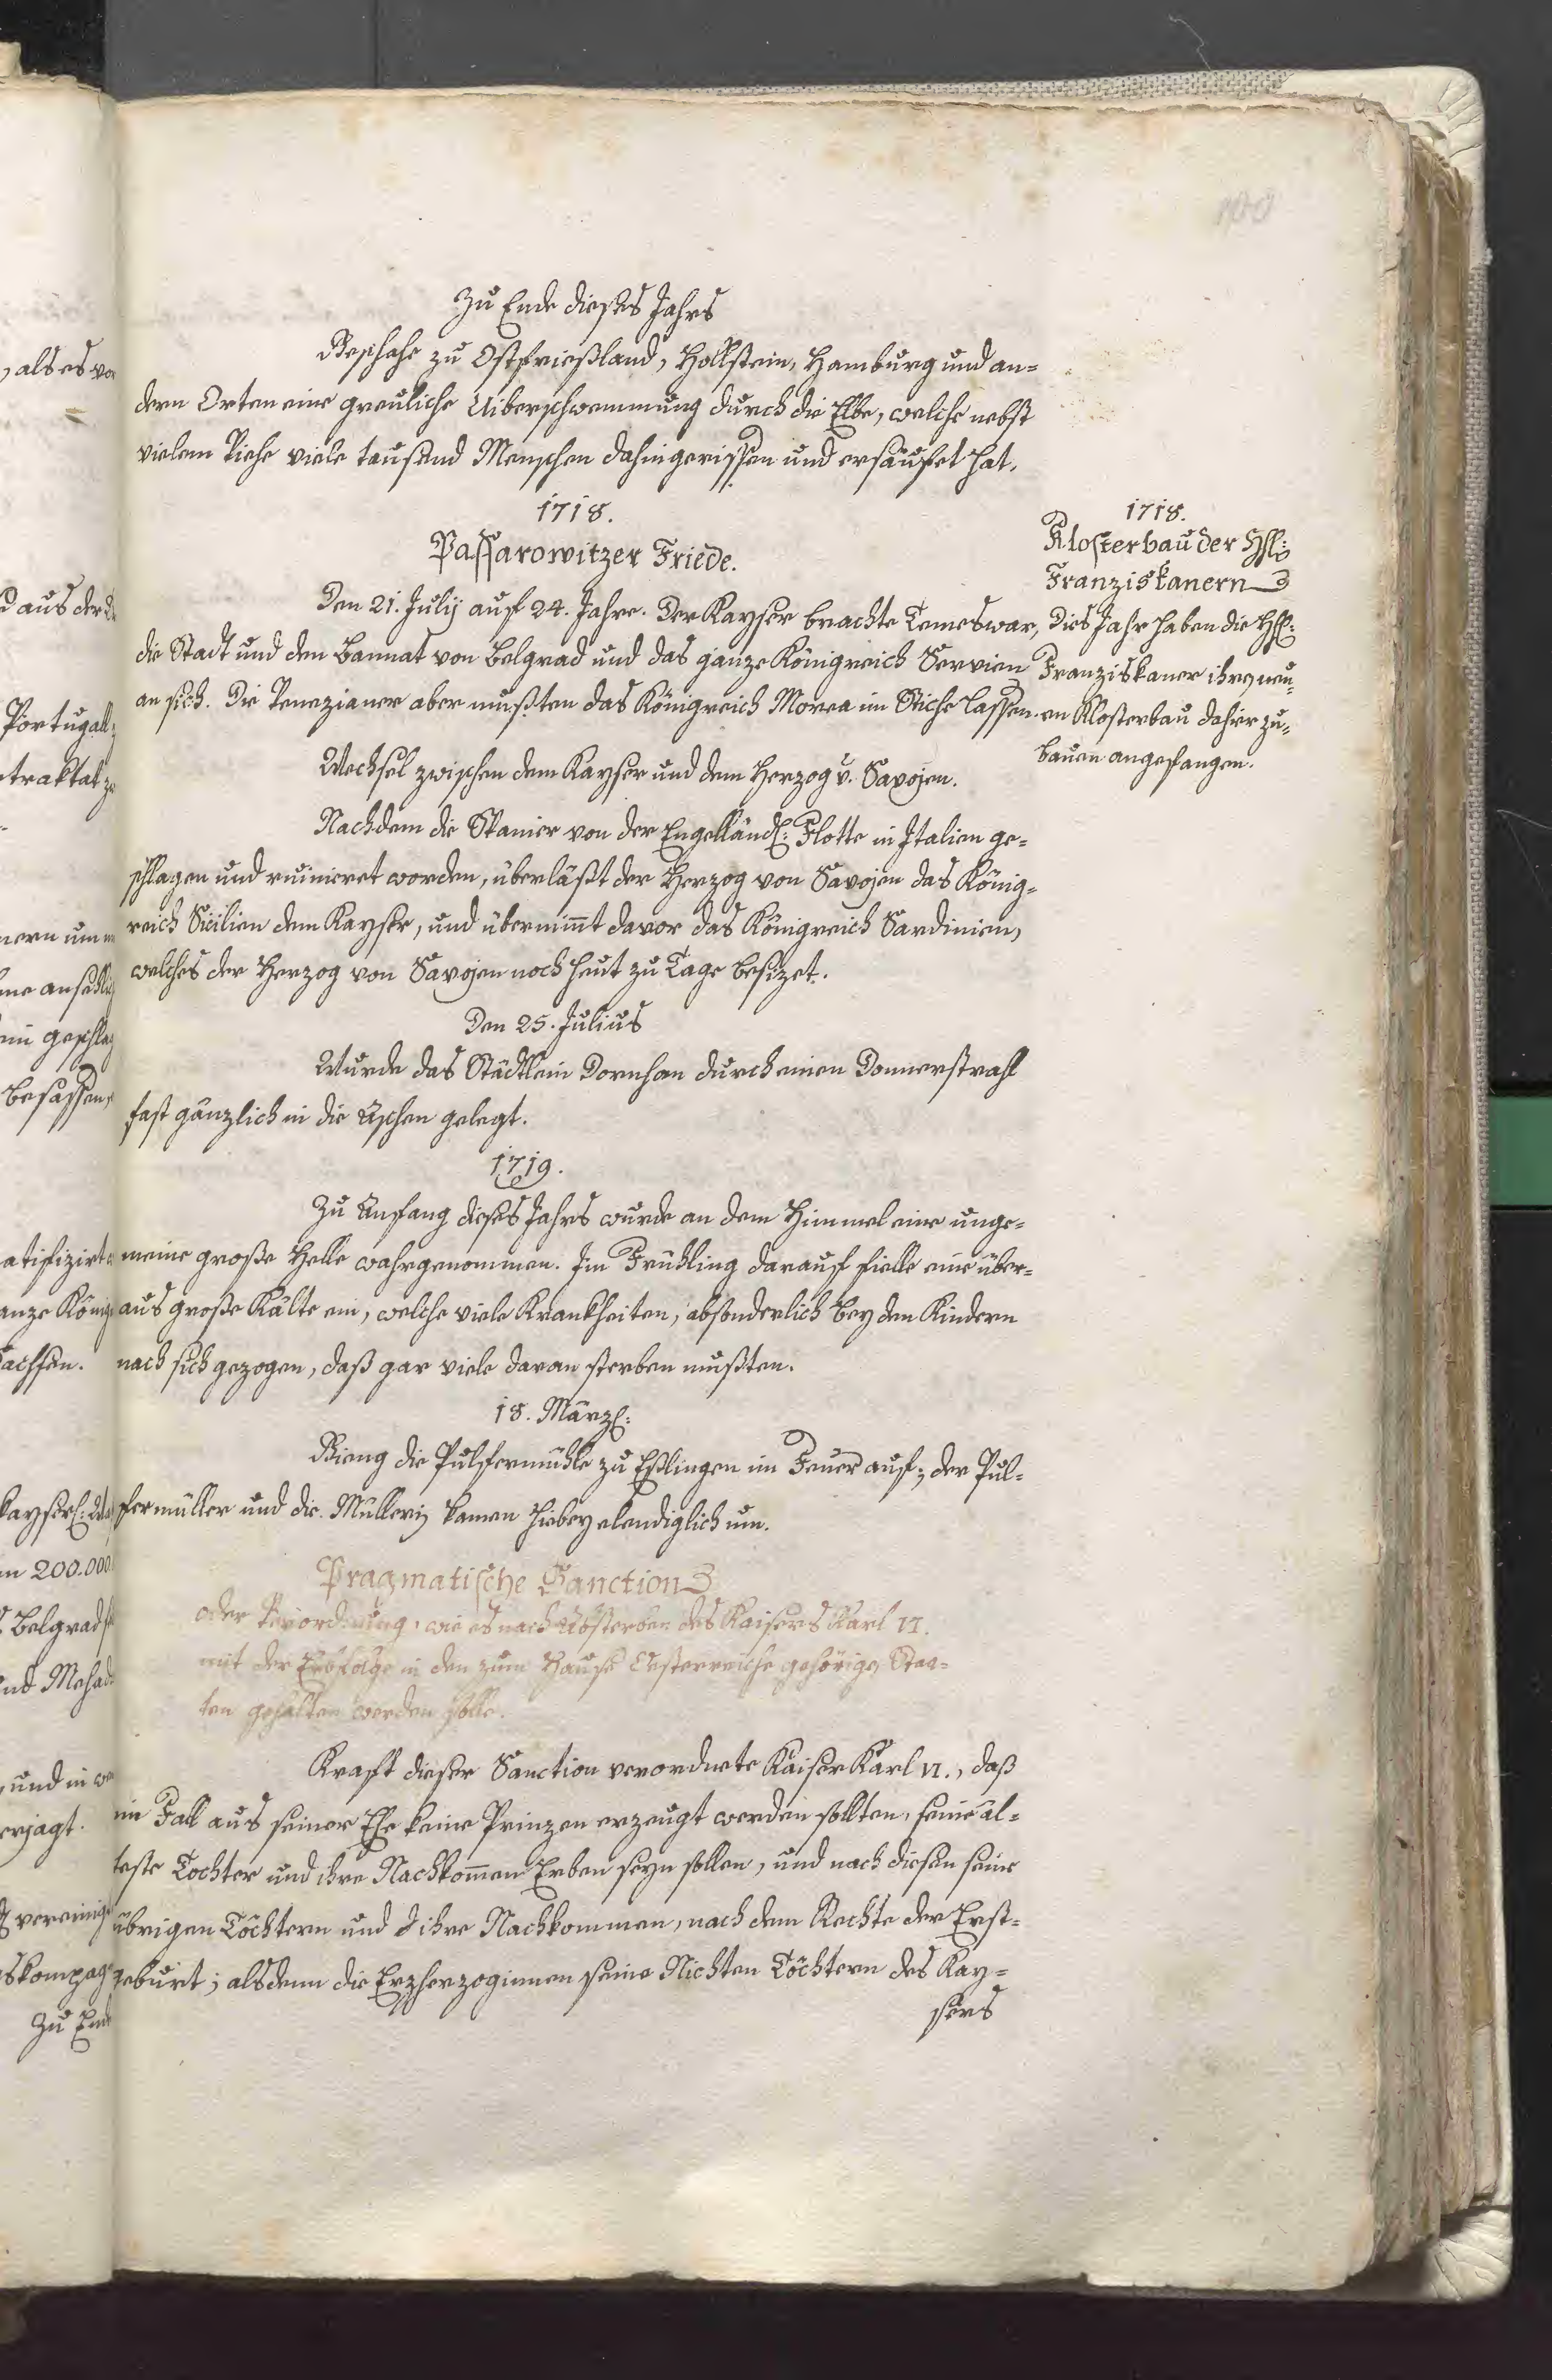 100
Zu Ende dieses Jahrs
Beschahe zu Ostfrießland, Hollstein, Hamburg und an=
dern Orten eine greuliche Uiberschwemmung durch die Elbe, welche nebst
vielem Viehe viele tausend Menschen dahingerissen und ersäufet hat.
1718.
Passarowitzer Friede.
Den 21. Julij auf 24. Jahre. Der Kayser brachte Temeswar,
die Stadt und den Bannat von Belgrad und das ganze Königreich Servien
an sich. Die Venezianer aber mußten das Königreich Morea im Stiche lassen.
Wechsel zwischen dem Kayser und dem Herzog v. Savojen.
Nachdem die Spanier von der Engelländ: Flotte in Italien ge=
schlagen und ruinieret worden, überläßt der Herzog von Savojen das König=
reich Sicilien dem Kayser, und übernimt davor das Königreich Sardinien,
welches der Herzog von Savojen noch heut zu Tage besizet.
Den 25. Julius
Wurde das Städtlein Dornhan durch einen Donnerstrahl
fast gänzlich in die Aschen gelegt.
1719.
Zu Anfang dieses Jahrs wurde an dem Himmel eine unge=
meine große Helle wahrgenommen. Im Frühling darauf fielle eine über=
aus große Kälte ein, welche viele Krankheiten, absonderlich bey den Kindern
nach sich gezogen, daß gar viele daran sterben mußten.
18. Märzl:
Gieng die Pulfermühle zu Eßlingen im Feuer auf; der Pul=
fermüller und die Müllerin kamen hiebey elendiglich um.
Pragmatische Sanction
oder Verordnung, wie es nach Absterben des Kaisers Karl VI.
mit der Erbfolge in den zum Hause Oesterreiche gehörigen Staa=
ten gehalten werden solle.
Kraft dieser Sanction verordnete Kaiser Karl VI., daß
im Fall aus seiner Ehe keine Prinzen erzeugt werden sollten, seine äl=
teste Tochter und ihre Nachkommen Erben seyn sollen, und nach diesen seine
übrigen Töchtern und ihre Nachkommen, nach dem Rechte der Erst=
geburt; alsdenn die Erzherzoginnen seine Nichten Töchtern des Kay=
sers
1718.
Klosterbau der HH:
Franziskanern
Dies Jahr haben die HH:
Franziskaner ihren neu=
en Klosterbau dahier zu=
bauen angefangen.